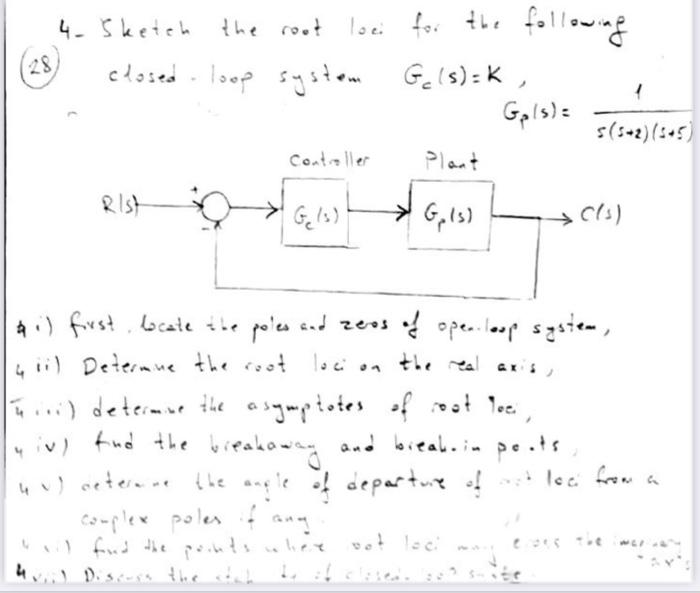 4- Sketch the root loci for the following
(28)
closed-loop system Gc(s)=K,
Gp(s)= 1
s(s+2)(s+5)
Controller Plant
R(s) + Gc(s) Gp(s) C(s)
-
4 i) first, locate the poles and zeros of open-loop system,
4 ii) Determine the root loci on the real axis,
4 iii) determine the asymptotes of root loci,
4 iv) find the breakaway and break-in points,
4 v) determine the angle of departure of root loci from a
complex poles if any.
4 vi) find the points where root loci may cross the imaginary axis
4 vii) Discuss the of closed-loop